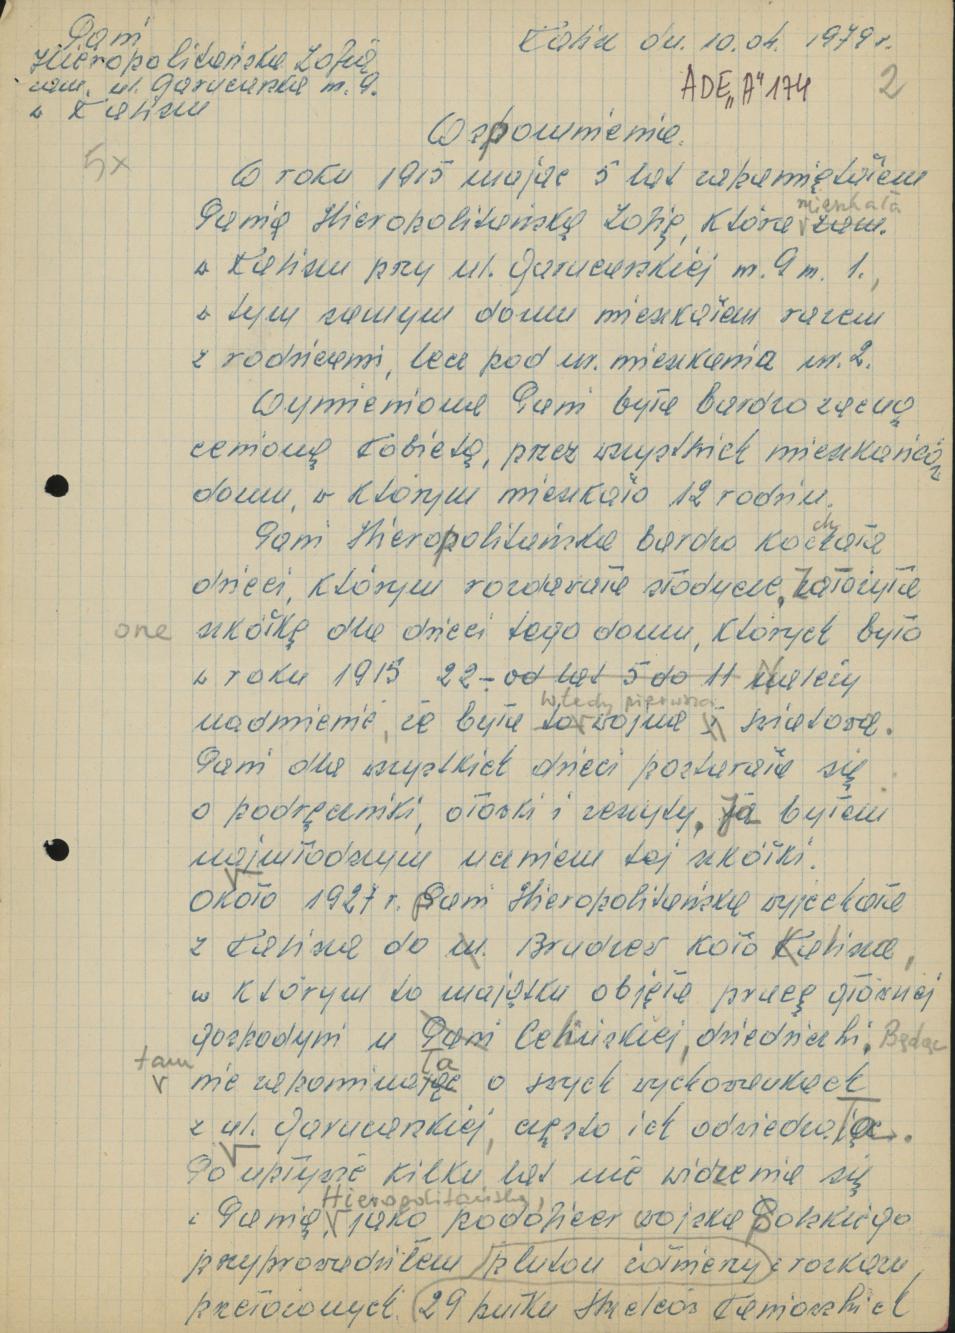 Pani
Hieropolitańska Zofia
zam. ul. Garncarska m. 9.
w Kaliszu
Kalisz dn. 10.04. 1979 r.
ADE "A" 174
2
Wspomnienie.
5x
W roku 1915 mając 5 lat zapamiętałem
mieszkała
Panią Hieropolitańską Zofię, która zam.
w Kaliszu przy ul. Garncarskiej m. 9 m. 1.,
w tym samym domu mieszkałem razem
z rodzicami, lecz pod nr. mieszkania nr. 2.
Wymieniona Pani była bardzo zacną
cenioną kobietą, przez wszystkich mieszkańców
domu, w którym mieszkało 12 rodzin.
Pani Hieropolitańska bardzo kochała
dzieci, którym rozdawała słodycze, Założyła
one szkółkę dla dzieci tego domu, których było
w roku 1915 22 - od lat 5 do 11 Należy
wtedy pierwsza
nadmienić, że była to wojna i światowa.
Pani dla wszystkich dzieci postarała się
o podręczniki, ołówki i zeszyty. Ja byłem
najmłodszym uczniem tej szkółki.
Około 1927 r. Pani Hieropolitańska wyjechała
z Kalisza do m. Brudzew koło Kalisza,
w którym to majątku objęła pracę głównej
gospodyni u Pani Celińskiej, dziedziczki. Będąc
tam
nie zapominając o swych wychowankach
ła
z ul. Garncarskiej, często ich odwiedzając.
ła
Po upływie kilku lat nie widzenia się
Hieropolitańską,
z Panią jako podoficer wojska Polskiego
przyprowadziłem pluton żołnierzy z rozkazu
przełożonych 29 pułku Strzelców Kaniowskich